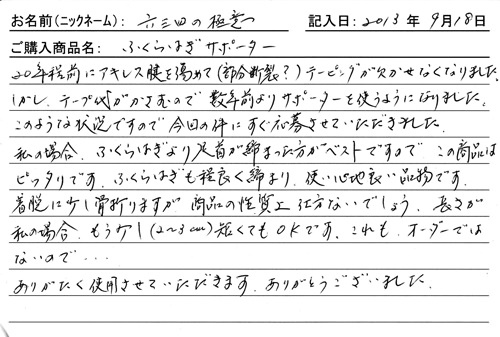 お名前(ニックネーム): 六三四の極意 記入日: 2013年 9月18日
ご購入商品名: ふくらはぎサポーター
20年程前にアキレス腱を傷めて(部分断裂?)テーピングが欠かせなくなりました。
しかし、テープ代がかさむので数年前よりサポーターを使うようになりました。
このような状況ですので今回の件にすぐ応募させていただきました。
私の場合、ふくらはぎより足首が締まった方がベストですので この商品は
ピッタリです。ふくらはぎも程良く締まり、使い心地良い品物です。
着脱に少し骨折りますが 商品の性質上 仕方ないでしょう。長さが
私の場合、もう少し(2〜3cm)短くてもOKです。これも、オーダーでは
ないので・・・
ありがたく使用させていただきます。ありがとうございました。